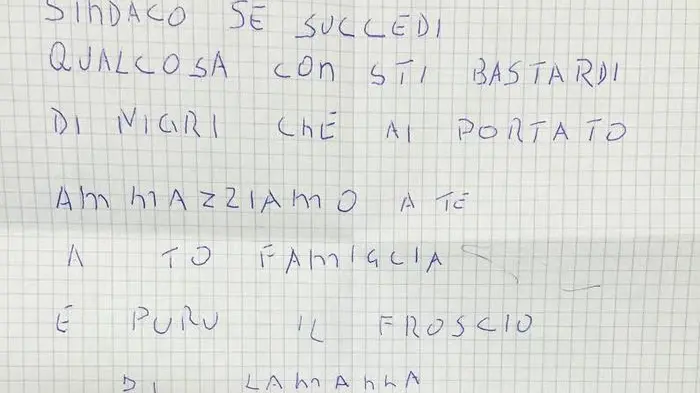 SINDACO SE SUCCEDI
QUALCOSA CON STI BASTARDI
DI NIGRI CHE AI PORTATO
AMMAZZIAMO A TE
A TO FAMIGLIA
E PURU IL FROSCIO
DI LAMANNA